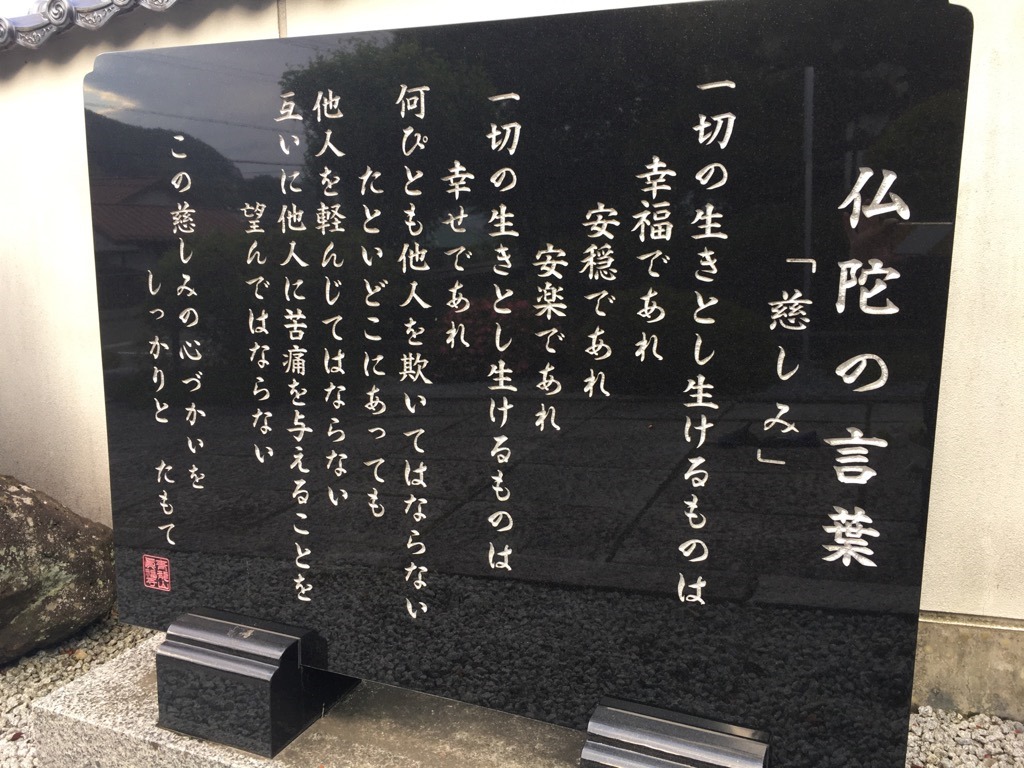 仏陀の言葉
「慈しみ」
一切の生きとし生けるものは
幸福であれ
安穏であれ
安楽であれ
一切の生きとし生けるものは
幸せであれ
何ぴとも他人を欺いてはならない
たといどこにあっても
他人を軽んじてはならない
互いに他人に苦痛を与えることを
望んではならない
この慈しみの心づかいを
しっかりと たもて